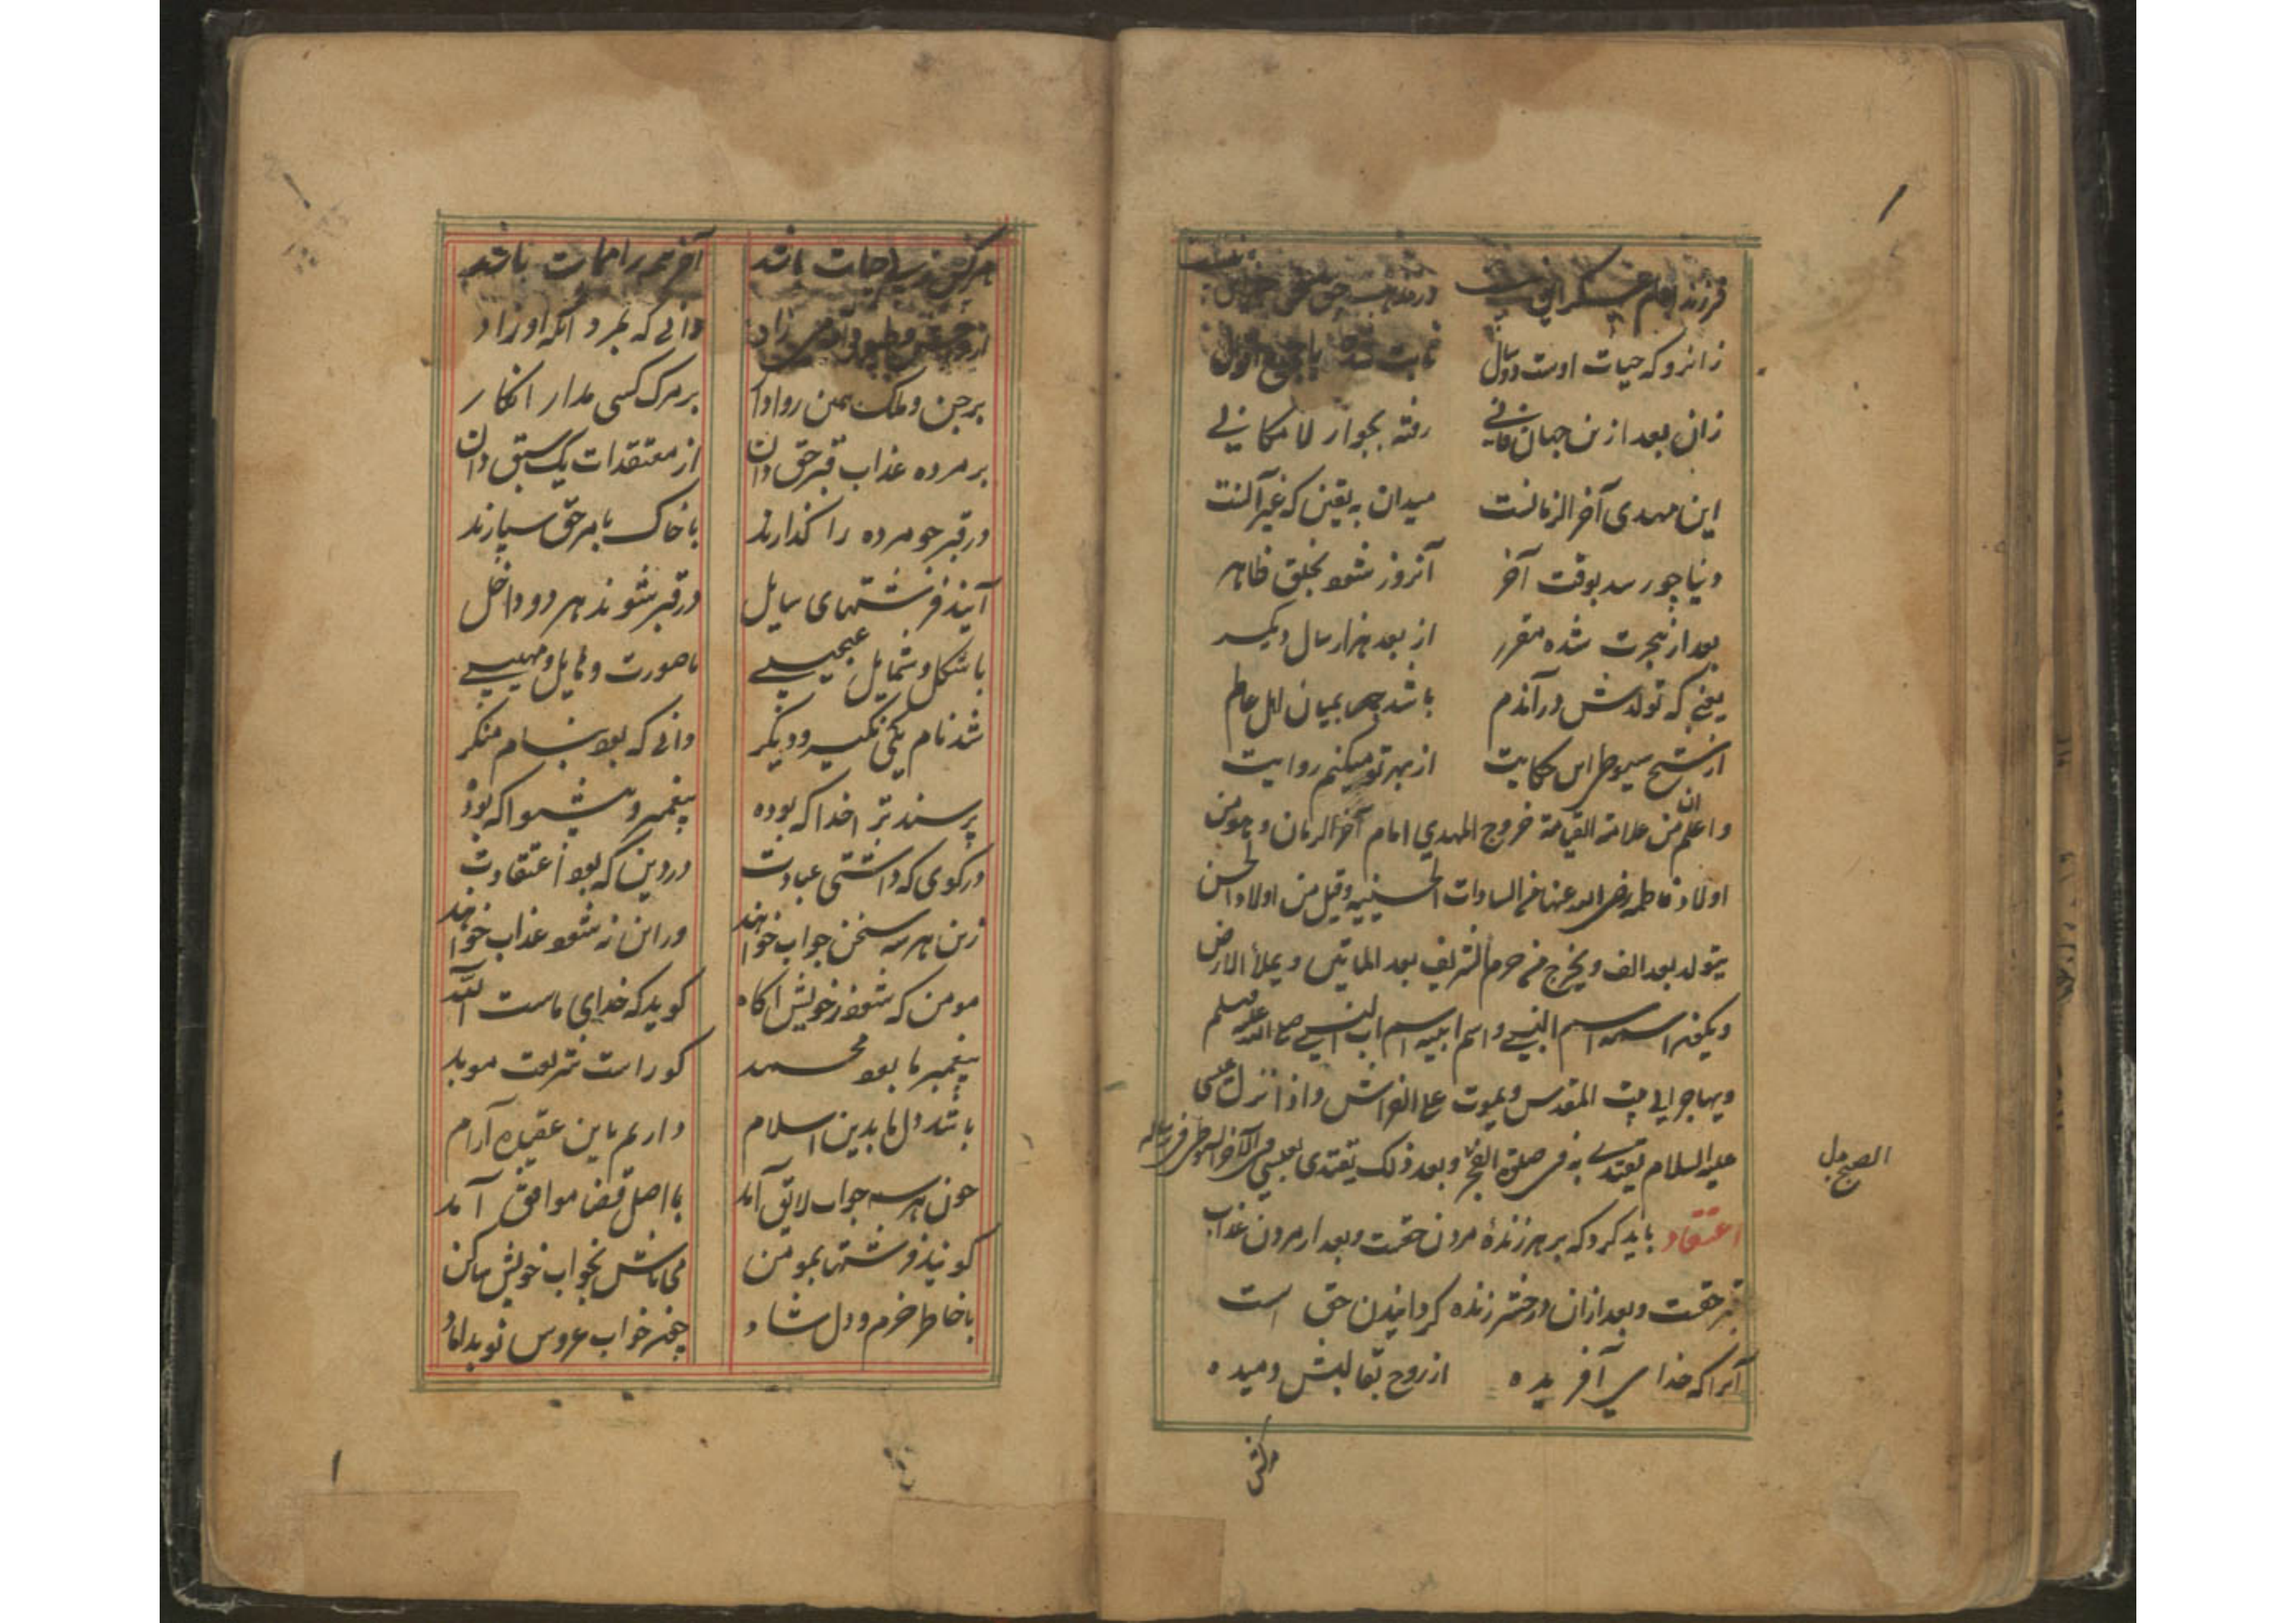 فرزند امام عسکری
زانرو که حیات اوست دو سال ثابت شده با جمیع اقوال
زان بعد ازین جهان فانی رفته بجوار لامکانی
این مهدی آخر الزمانست میدان به یقین که غیر آنست
دنیا چو رسد بوقت آخر آنروز شود بخلق ظاهر
بعد از هجرت شده مقرر از بعد هزار سال دیگر
یعنی که تولدش در آندم باشد بمیان اهل عالم
از شیخ سیوطی این حکایت از بهر تو میکنم روایت
واعلم ان من علامة القیامة خروج المهدي امام آخر الزمان وهو من
اولاد فاطمه رضی الله عنها من السادات الحسینیه وقیل من اولاد الحسن
یتولد بعد الف ویخرج من حرم الشریف بعد الماتین ویملأ الارض
ویکون اسمه اسم النبی واسم ابیه اسم اب النبی صلی الله علیه وسلم
ویهاجر الی بیت المقدس ویموت علی الفراش واذا نزل عیسی
علیه السلام یقتدی به فی صلوة الفجر وبعد ذلک یقتدی بعیسی
الصبح بدل
اعتقاد باید کرد که بر هر زندهٔ مردن حقست وبعد از مردن عذاب
قبر حقست وبعد ازان در حشر زنده گردانیدن حق است
آنرا که خدای آفریده از روح بقالبش دمیده
هر کس
هر کس ز پی حیات باشد آخر همه را ممات باشد
از وحش و طیور و آدمی زاد دانی که بمرد آنکه او زاد
بر جن و ملک همین روا دار بر مرگ کسی مدار انکار
بر مرده عذاب قبر حق دان از معتقدات یک سبق دان
در قبر چو مرده را گذارند با خاک بامر حق سپارند
آیند فرشتهای سایل در قبر شوند هر دو داخل
با شکل و شمایل عجیبی با صورت و مهیبی
شد نام یکی نکیر و دیگر دانی که بود بنام منکر
پرسند ترا خدا که بوده پیغمبر و پیشوا که بود
در کوی که داشتی عبادت در دین که بود اعتقادت
زین هر سه سخن جواب خواهند ور این نه شود عذاب خواهند
مومن که شود ز خویش آگاه گوید که خدای ماست الله
پیغمبر ما بود محمد کو راست شریعت موید
باشد دل ما بدین اسلام داریم باین عقیده آرام
چون هر سه جواب لایق آمد با اصل قضا موافق آمد
گویند فرشتها بمومن می باش بخواب خویش ساکن
با خاطر خرم و دل شاد همچو خواب عروس نو بداماد